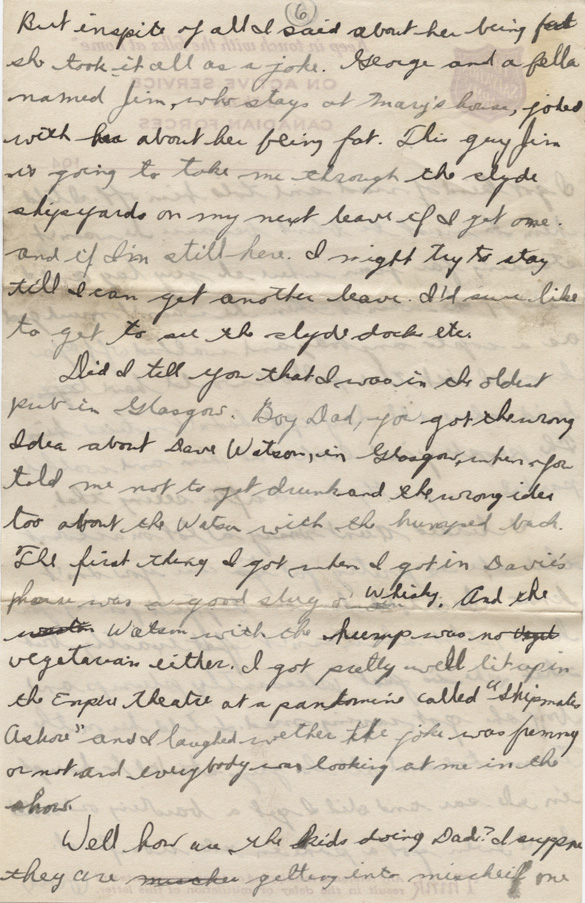 6
But inspite of all I said about her being fat
she took it all as a joke. George and a fella
named Jim, who stays at Mary's house, joked
with her about her being fat. This guy Jim
is going to take me through the slyde
shipsyards on my next leave if I get one.
and if I'm still here. I might try to stay
till I can get another leave. I'd sure like
to get to see the slyde docks etc.
Did I tell you that I was in the oldest
pub in Glasgow. Boy Dad, you got the wrong
Idea about Dave Watson, in Glasgow, when you
told me not to get drunk and the wrong idea
too about the Watson with the humped back.
The first thing I got when I got in Davie's
place was a good slug o' Whisky. And the
Watson with the hump was no
vegetarian either. I got pretty well lit up in
the Empire theatre at a pantomine called "Shipmates
Ashore" and I laughed wether the joke was funny
or not and everybody was looking at me in the
show.
Well how are the kids doing Dad? I suppose
they are getting into mischeif one
Keep in touch with the folks at home
ON ACTIVE SERVICE
CANADIAN FORCES
194